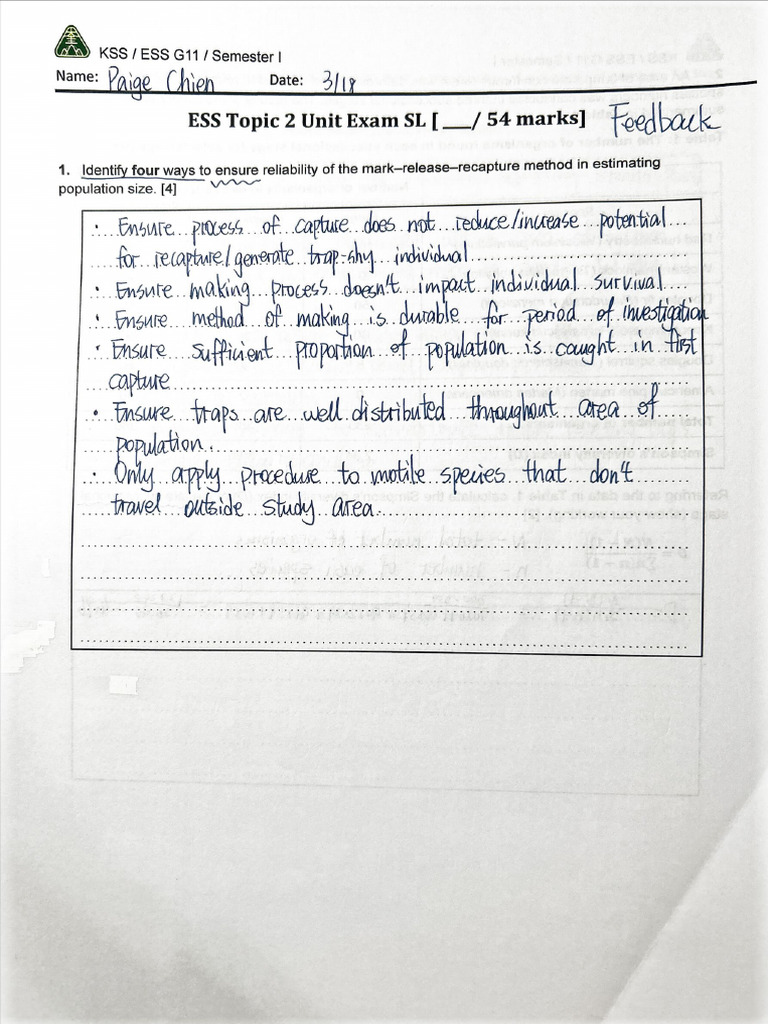 KSS / ESS G11 / Semester I
Name: Paige Chien Date: 3/18
ESS Topic 2 Unit Exam SL [ ___/ 54 marks] Feedback
1. Identify four ways to ensure reliability of the mark–release–recapture method in estimating
population size. [4]
· Ensure process of capture does not reduce/increase potential
for recapture/generate trap-shy individual
· Ensure making process doesn't impact individual survival
· Ensure method of making is durable for period of investigation
· Ensure sufficient proportion of population is caught in first
capture
· Ensure traps are well distributed throughout area of
population.
· Only apply procedure to motile species that don't
travel outside study area.